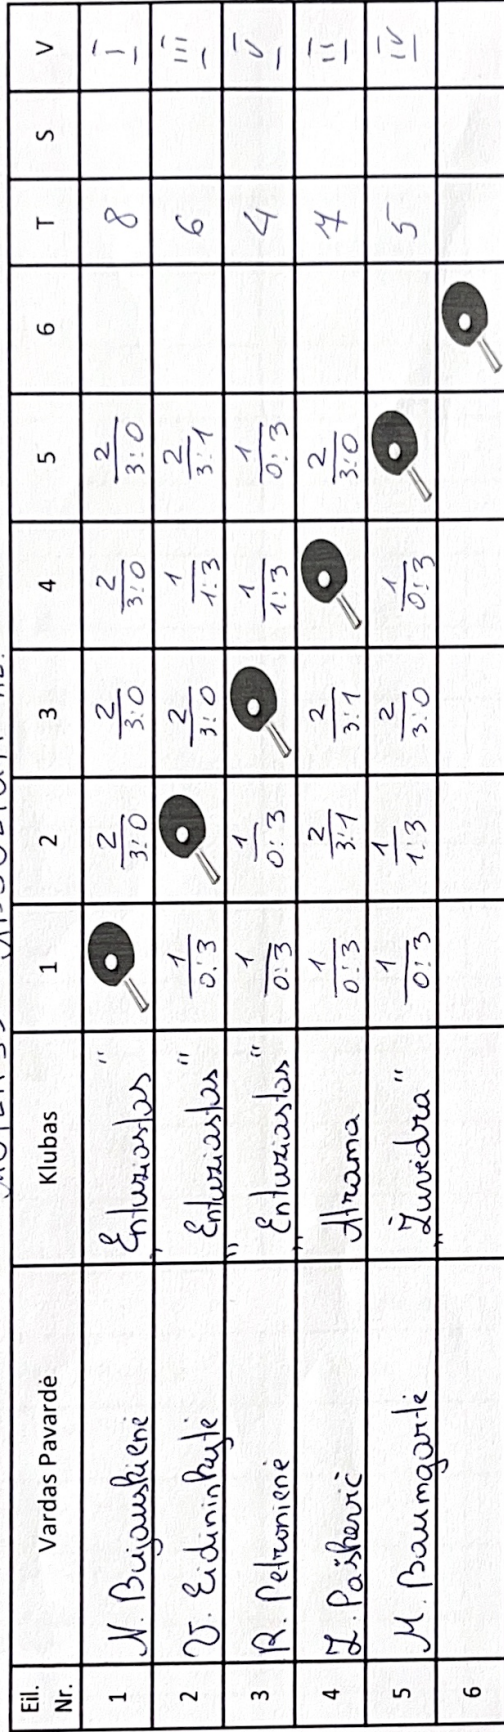 Eil. Nr. Vardas Pavardė Klubas 1 2 3 4 5 6 T S V
1 N. Bujauskienė „Entuziastas" 2/3:0 2/3:0 2/3:0 2/3:0 8 I
2 V Eidininkytė „Entuziastas" 1/0:3 2/3:0 1/1:3 2/3:1 6 III
3 R. Petronienė „Entuziastas" 1/0:3 1/0:3 1/1:3 1/0:3 4 V
4 Paškevič Atrama 1/0:3 2/3:1 2/3:1 2/3:0 7 II
5 M. Baumgartė „Žuvėdra" 1/0:3 1/1:3 2/3:0 1/0:3 5 IV
6